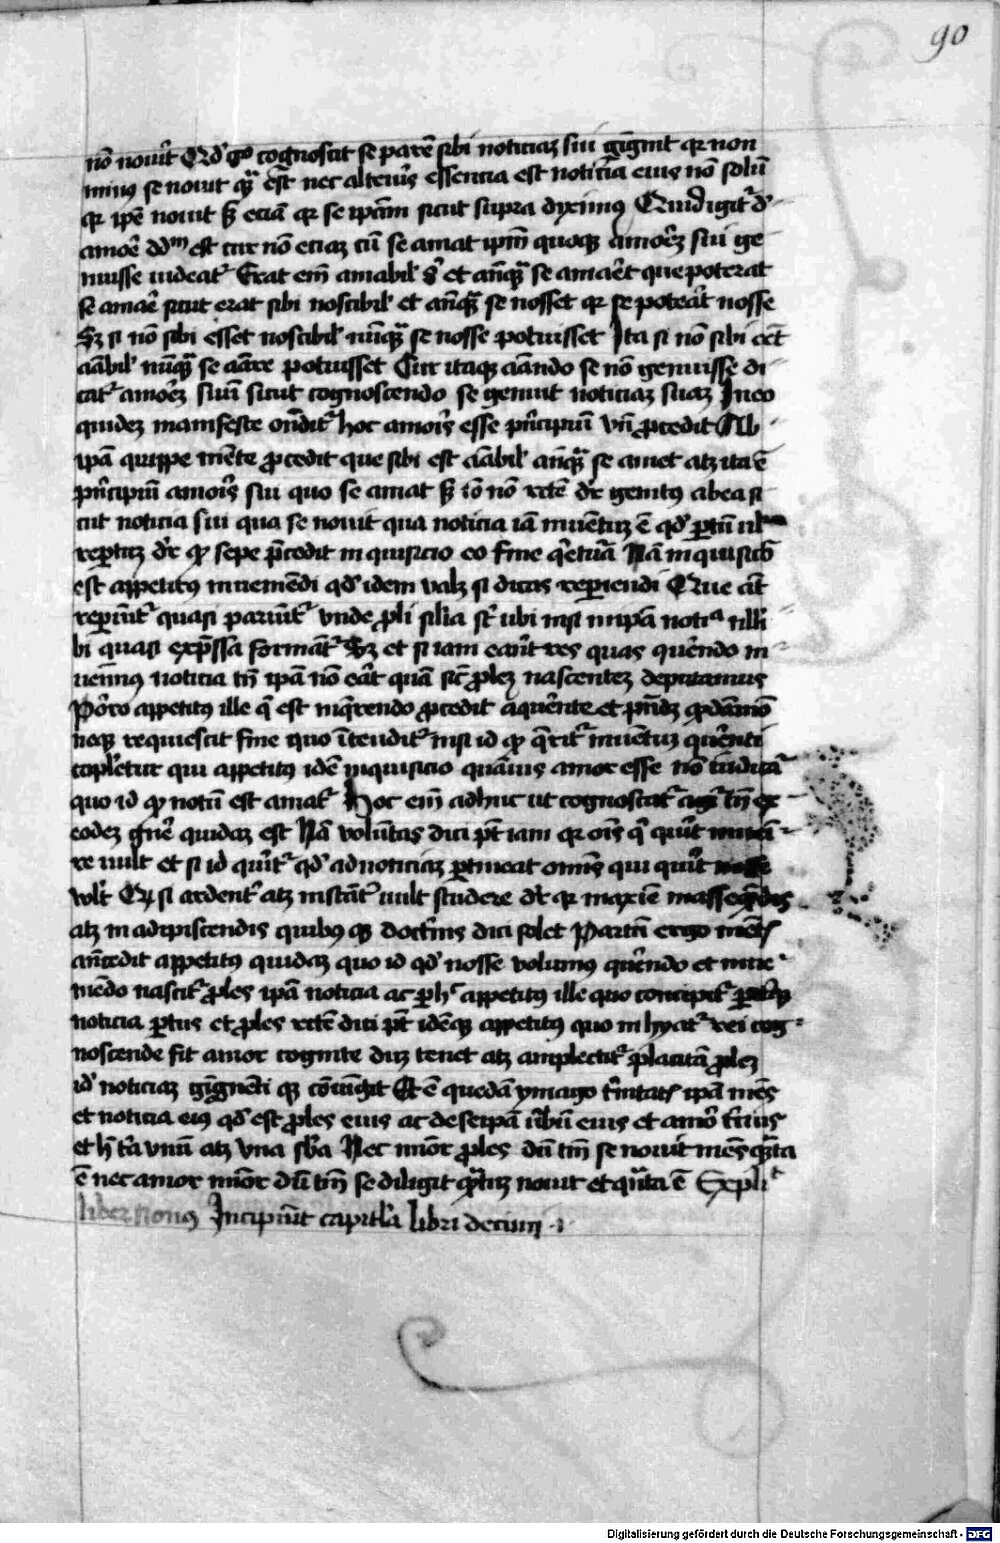 90
nō nouit Qd' gͦ cognoscit se parē sibi noticiaz sui gignit qr non
minus se nouit qᷓ est nec alterius essentia est noticia eius nō solū
qr ipē nouit sꝫ eciā qr se ipam sicut supra diximus Quid igit' d'
amoē dd'm est cur nō eciaz cū se amat ipm quoqꝫ amorez sui ge
nuisse uideat' Erat em amabil' sꝫ et anqᷓ se amaret que poterat
se amaē sicut erat sibi noscibil' et anqᷓ se nosset qr se poterat nosse
Sꝫ si nō sibi esset noscibil' nunqᷓ se nosse potuisset Ita si nō sibi eēt
amabil' nunqᷓ se amare potuisset Cur itaqꝫ amando se nō genuisse di
cat' amorez suum sicut cognoscendo se genuit noticiaz suaz In eo
quidez manifeste ondit' hoc amoris esse principium vn procedit Ab
ipa quippe mente procedit que sibi est amabil' anqᷓ se amet atqꝫ ita ē
principium amoris sui quo se amat sꝫ io nō recte dr genitus ab ea si
cut noticia sui qua se nouit qua noticia iam inuentuz ē qd' partum ul'
repertuz dr qd sepe precedit inquisicio eo fine quietura Nam inquisicio
est appetitus inueniendi qd' idem valet si dicas reperiendi Que aut
reperiunt' quasi pariunt' vnde proli similia sunt ubi nisi in ipa noticia illi
bi quasi expressa formant' Sꝫ et si iam erant res quas querendo in
uenimus noticia tn ipa nō erat quam sicut prolez nascentez deputamus
Porro appetitus ille qui est in querendo procedit a querente et pendet quodammo
neqꝫ requiescit fine quo intendit' nisi id qd querit' inuentuz querenti
copuletur qui appetitus idē inquisicio quamuis amor esse nō uideat'
quo id qd notum est amat' Hoc em adhuc ut cognoscat' agit' tn ex
eodez genere quidaz est Nam voluntas dici pt iam qr omnis qui querit inueni
re uult et si id querit' qd' ad noticiaz pertineat omnis qui querit nosse
vult Qd si ardenter atqꝫ instanter uult studere dr qd maxime in assequendis
atqꝫ in adipiscendis quibusqꝫ doctrinis dici solet Partum ergo mentis
antecedit appetitus quidaz quo id qd' nosse volumus querendo et inue
niendo nascit' proles ipa noticia ac per hoc appetitus ille quo concipit' pariturqꝫ
noticia partus et proles recte dici pt idēqꝫ appetitus quo inhyat' rei cog
noscende fit amor cognite duz tenet atqꝫ amplectit' placitam prolez
id' noticiaz gignenti qꝫ coniungit Et ē quedam ymago trinitatis ipa mens
et noticia eius qd' est proles eius ac de seipa uerbum eius et amor tercius
et hec tria vnum atqꝫ vna suba Nec minor proles dum tantam se nouit mens quanta
ē nec amor minor dum tantum se diligit quantuz nouit et quanta ē Explicit
liber Nonus Incipiunt capitula libri decimi
Digitalisierung gefördert durch die Deutsche Forschungsgemeinschaft - DFG